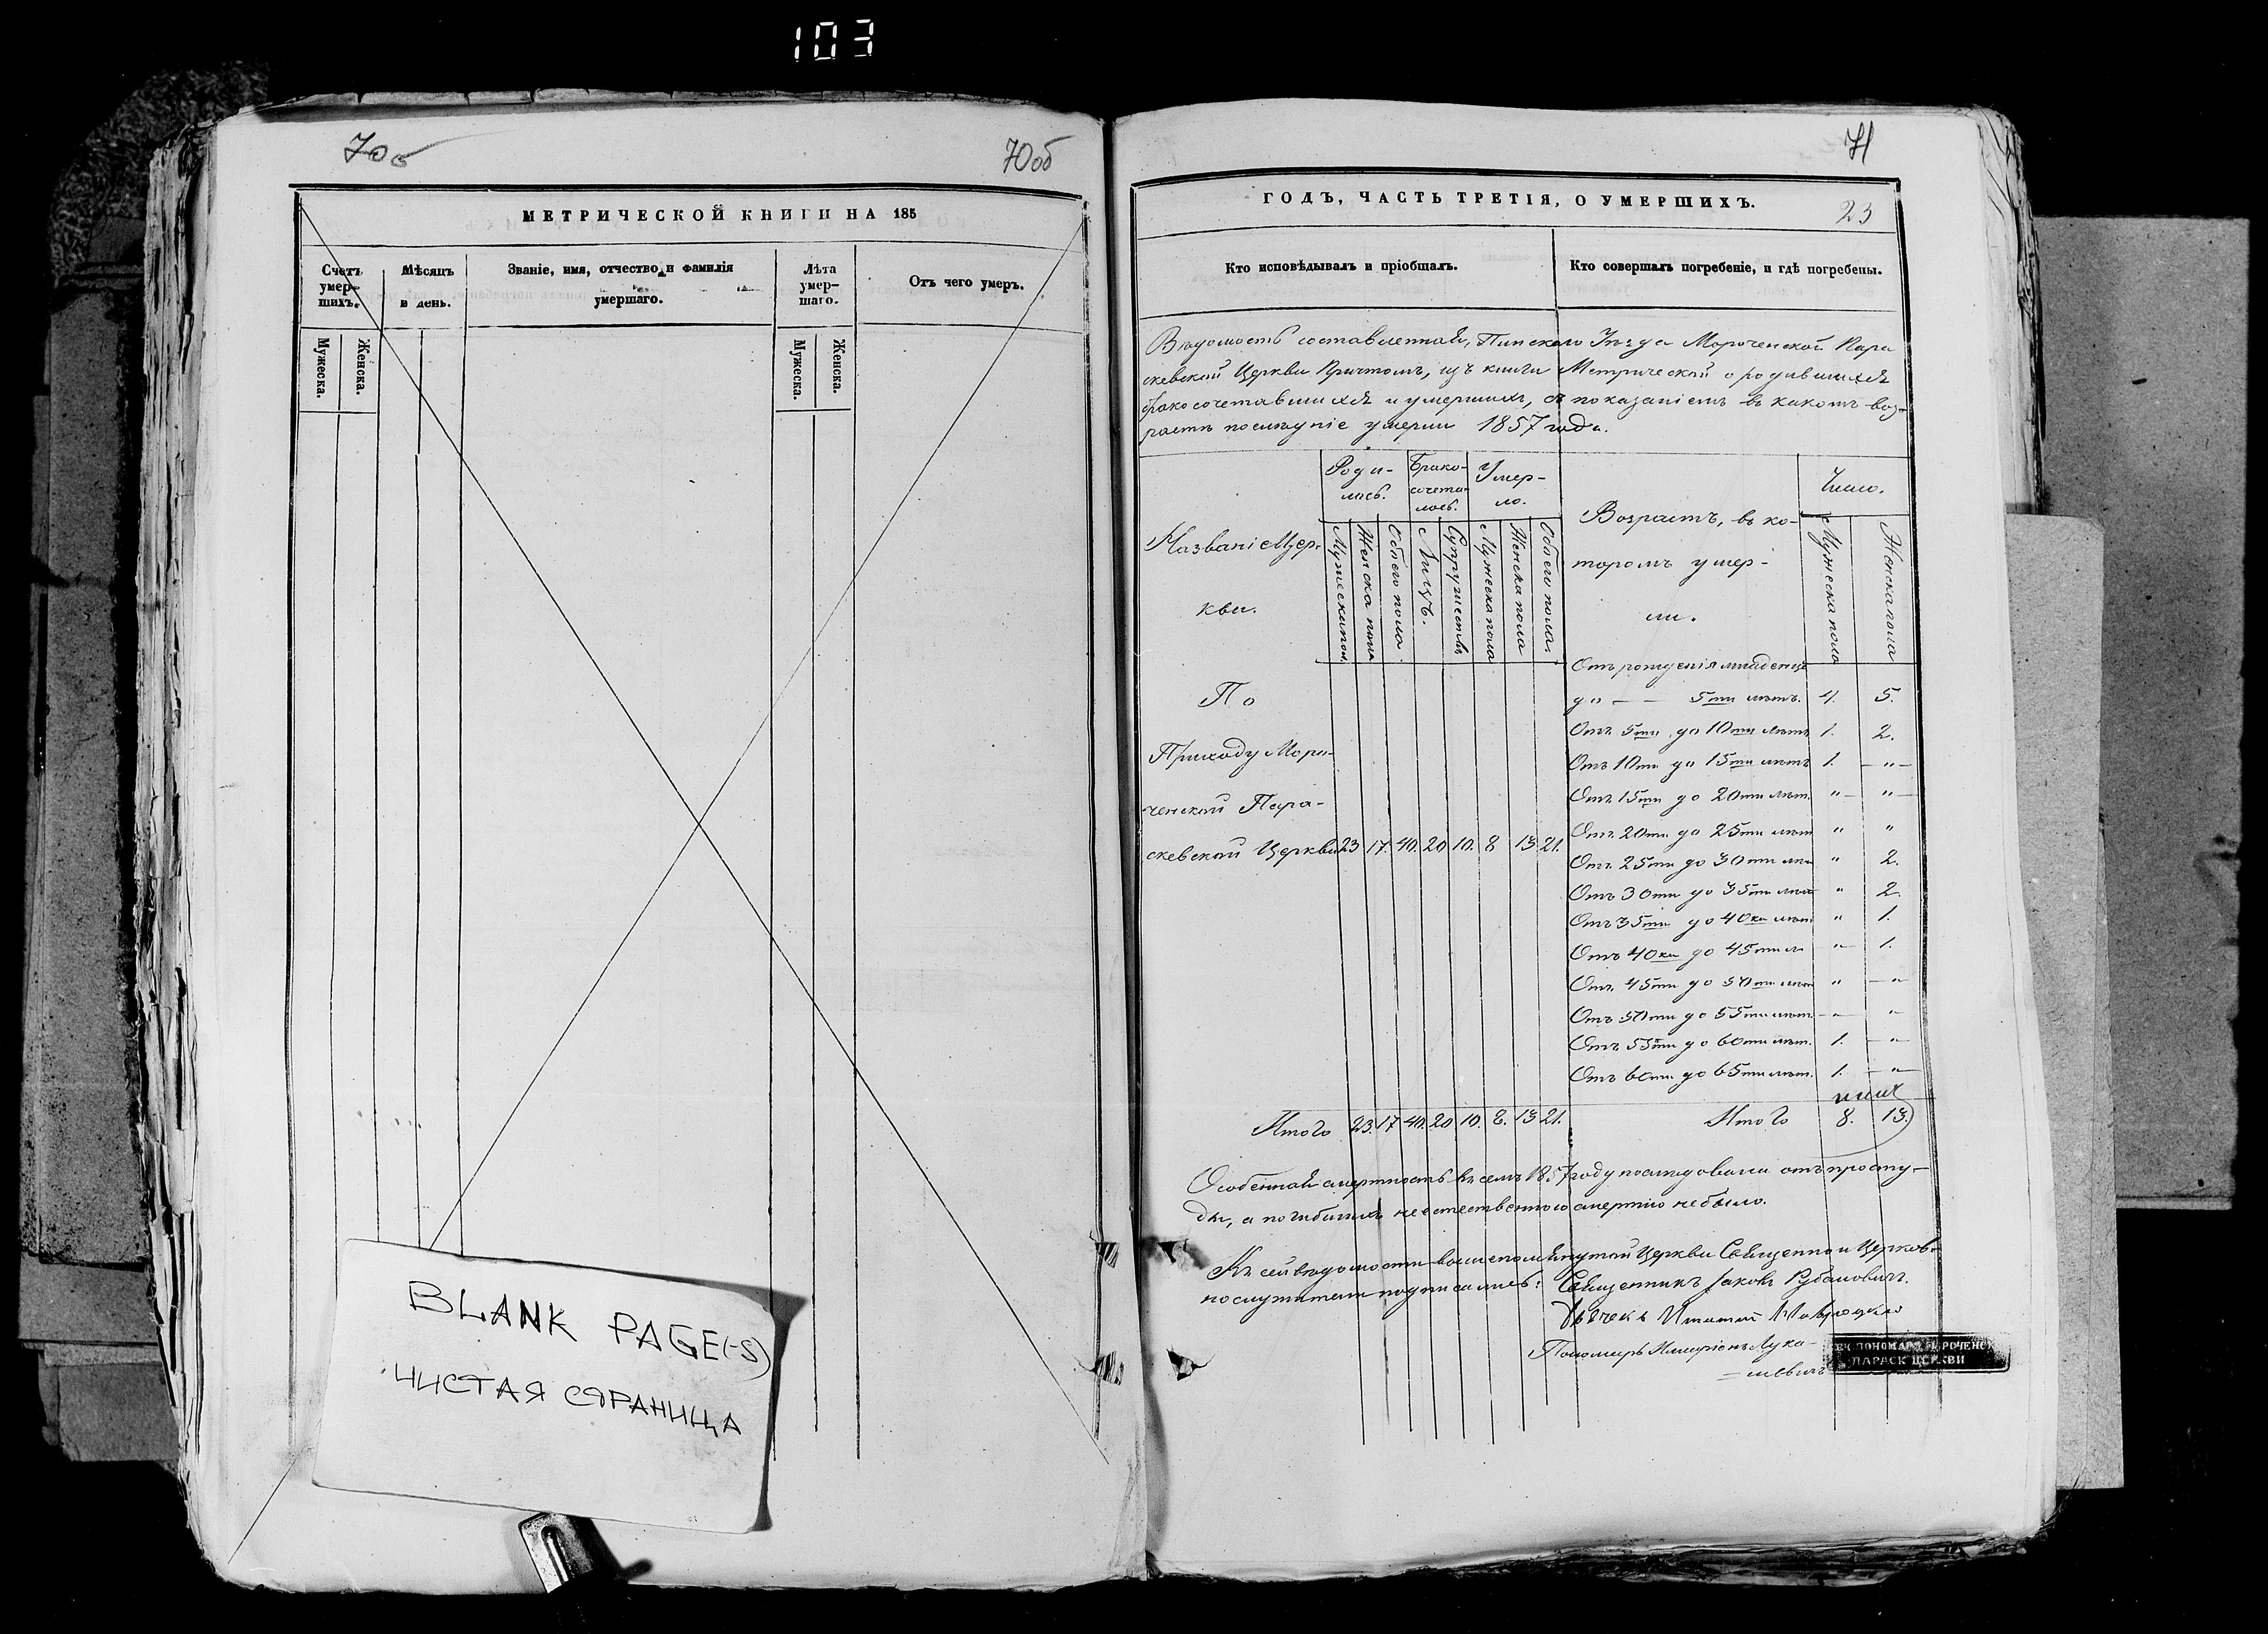 103
70об
70об
МЕТРИЧЕСКОЙ КНИГИ НА 185
Счетъ умер-шихъ.
Мѣсяцъ и день.
Званіе, имя, отчество и фамилія умершаго.
Лѣта умер-шаго.
Отъ чего умеръ.
Мужеска.
Женска.
Мужеска.
Женска.
BLANK PAGE(-S)
ЧИСТАЯ СТРАНИЦА
71
ГОДЪ, ЧАСТЬ ТРЕТІЯ, О УМЕРШИХЪ.
23
Кто исповѣдывалъ и пріобщалъ.
Кто совершалъ погребеніе, и гдѣ погребены.
Вѣдомость составленная, Пинскаго Уѣзда Мороченской Пара
скевской Церкви Причтомъ, изъ книги Метрической о родившихся
бракосочетавшихся и умершихъ, съ показаніемъ въ какомъ воз-
растѣ послѣдніе умерли 1857 года.
Названіе Цер-
кви.
Роди-
лось.
Брако-
сочета-
лось.
Умер-
ло.
Возрастъ, въ ко-
торомъ умер-
ли.
Число.
Мужеска пол.
Женска пола
Обоего пола
Лицъ.
Супружествъ
Мужеска пола
Женска пола
Обоего пола.
Мужеска пола
Женска пола
По
Приходу Моро-
ченской Пара-
скевской Церкви 23 17. 40. 20 10. 8 13 21.
Отъ рожденія младенца
до — — 5ти лѣтъ. 4. 5.
Отъ 5ти до 10ти лѣтъ 1. 2.
Отъ 10ти до 15ти лѣтъ 1. — " —
Отъ 15ти до 20ти лѣт. " — " —
Отъ 20ти до 25ти лѣт " "
Отъ 25ти до 30ти лѣ " 2.
Отъ 30ти до 35ти лѣт " 2.
Отъ 35ти до 40ка лѣт " 1.
Отъ 40ка до 45ти л " — 1.
Отъ 45ти до 50ти лѣт " — "
Отъ 50ти до 55ти лѣт. — " "
Отъ 55ти до 60ти лѣт. 1. — "
Отъ 60ти до 65ти лѣт. 1. — "
Итого 23. 17 40. 20 10. 8. 13 21.
Итого 8. 13.
Особенная смертность въ семъ 1857 году послѣдовала отъ просту-
ды, а погибшихъ неестественною смертію небыло.
Къ сей вѣдомости вышепомянутой Церкви Священно и Церков-
нослужители подписались: Священникъ Іаковъ Рубановичъ.
Дьячекъ Игнатій
Пономарь Иларіонъ Лука-
шевичъ
ПАРАСК ЦЕРКВИ